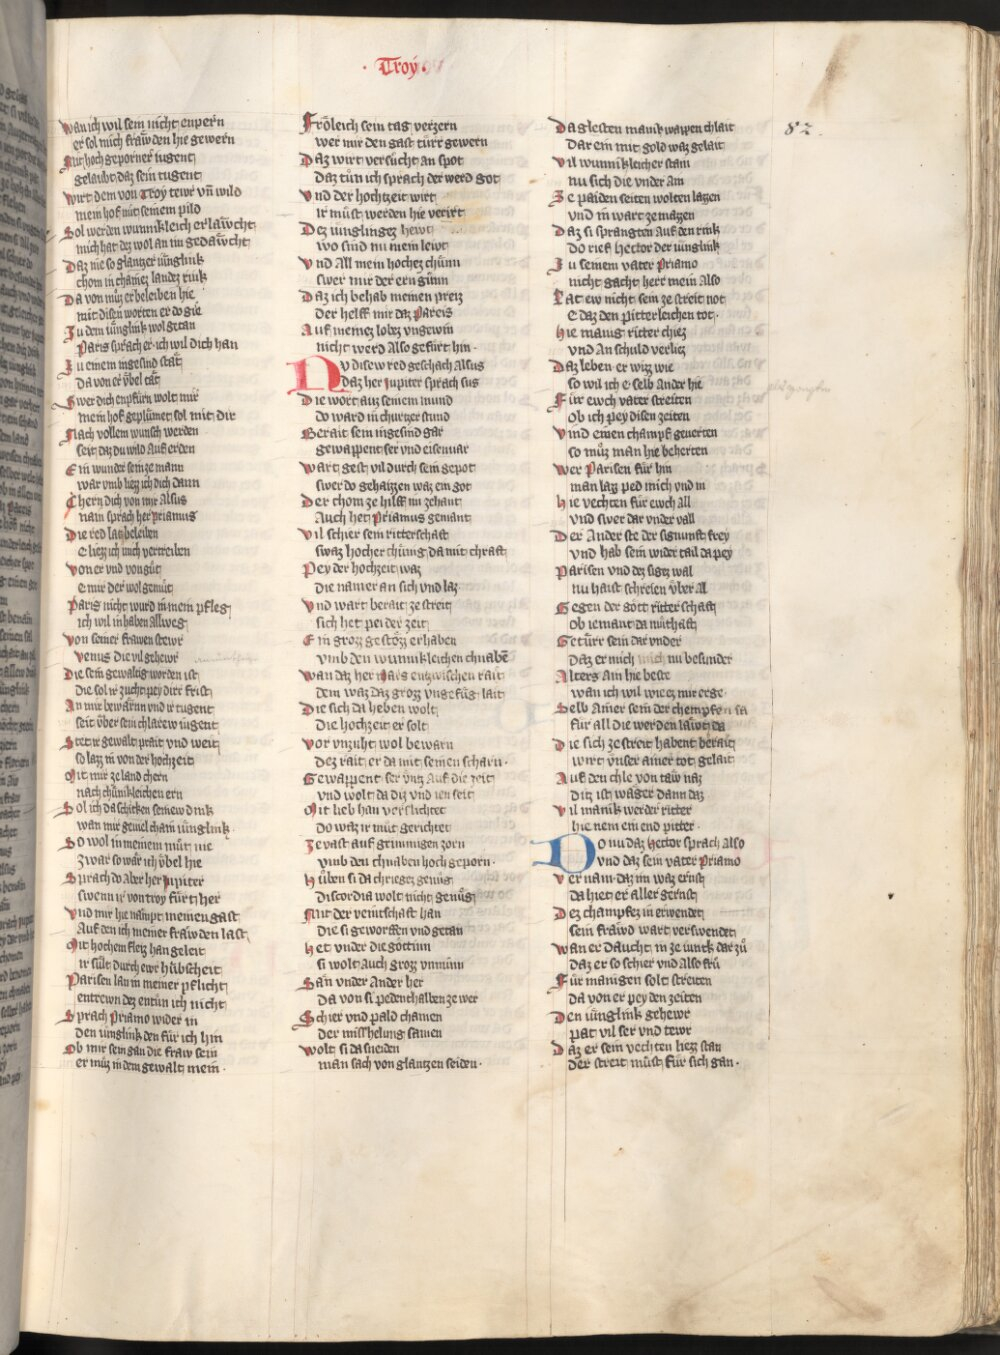 · Troy ·
82
Wan ich wil sein nicht enpern
er sol mich frawden hie gewern
Mit hoch geporner iugent
gelaubt daz sein tugent
wirt dem von Troy tewr vnd wild
mein hof mit seinem pild
Sol werden wunnikleich erlawcht
mich hat dez wol an im gedawcht
Daz nie so glantzer iunglink
chom in chainez landez rink
Da von muz er beleiben hie
mit disen worten er do gie
Zu dem iunglink wol getan
Paris sprach er ich wil dich han
Zu einem ingesind stat
da von er vbel tat
Swer dich enpfurn wolt mir
mein hof geplumet sol mit dir
Nach vollem wunsch werden
seit daz du wild auf erden
Ein wunder sein ze mann
war vmb liezz ich dich dann
Chern dich von mir Alsus
nain sprach her Priamus
Die red laz beleiben
e liezz ich mich vertreiben
von er vnd von gut
e mir der wolgemut
Paris nicht wurd in mein pfleg
ich wil in haben allweg
von seiner frawen stewr
venus die vil gehewr
Die sein gewaltig worden ist
die sol ir zucht pey dirr frist
An mir bewarnn vnd ir tugent
seit vber sein chlarew iugent
Stet ir gewalt prait vnd weit
so lazz in von der hochzeit
Mit mir ze land chern
nach chunikleichen ern
Sol ich da schicken seinew dink
wan mir geviel chain iunglink
So wol in meinem mut nie
Zwar so war ich vbel hie
Sprach do Aber her Jupiter
swenn ir von troy furt her
vnd mir hie nampt meinen gast
Auf den ich meiner frawden last
Mit hochem fleiz han geleit
ir sult durch ewr hubscheit
Parisen lan in meiner pflicht
entrewn dez entun ich nicht
Sprach Priamo wider in
den iunglink den fur ich hin
Ob mir sein gan die fraw sein
er muz in dem gewalt mein ·
Froleich sein tag verzern
wer mir den gast turr gewern
Daz wirt versucht an spot
daz tun ich sprach der werd got
vnd der hochzeit wirt
ir must werden hie verirt
Dez iunglingez hewt
wo sind nu mein lewt
vnd All mein hochez chunn
swer mir der ern gunn
Daz ich behab meinen preiz
der helff mir daz Pareis
Auf meinez lobez vngewin
nicht werd Also gefurt hin ·
Nu disew red geschach Alsus
daz her Jupiter sprach sus
Die wort auz seinem mund
do ward in churtzer stund
Berait sein ingesind gar
gewappent ser vnd eisenuar
Wart gest vil durch sein gepot
swer do gehaizzen waz ein got
Der chom ze hilff im zehant
Auch her Priamus genant
vil schier sein ritterschaft
swaz hocher chunig da mit chraft
Pey der hochzeit waz
die nam er an sich vnd laz
vnd wart berait ze streit
sich het pei der zeit
Ein grozz gestozz erhaben
vmb den wunnikleichen chnaben
Wan daz her Mars entzwischen rait
dem waz daz grozz vngefug lait
Die sich da heben wolt
die hochzeit er solt
vor vnzuht wol bewarn
dez rait er da mit seinen scharn ·
Gewappent ser vntz Auf die zeit
vnd wolt da diz vnd ien seit
Mit lieb han verslichtet
do waz ir mut gerichtet
Ze vast auf grimmigen zorn
vmb den chnaben hoch geporn ·
Huben si da chriegez genug
Discordia wolt nicht genug
Mit der veintschaft han
die si geworffen vnd getan
Het vnder die gottinn
si wolt Auch grozz vnminn
San vnder Ander her
da von si pedenthalben ze wer
Schier vnd pald chamen
der misshelung samen
wolt si da sneiden
man sach von glantzen seiden ·
Da glesten manik wappen chlait
Dar ein mit gold waz gelait
vil wunnikleicher stain
nu sich die vnder ain
Ze paiden seiten wolten lagen
vnd in wart ze magen
Daz si sprangten Auf den rink
do rief Hector der iunglink
Zu seinem vater Priamo
nicht gacht herr mein Also
Lat ew nicht sein ze streit not
e daz den pitterleichen tot ·
Hie manig ritter chiez
vnd An schuld verliez
Daz leben er wizz wie
so wil ich e selb Ander hie
Fur ewch vater streiten
Ob ich pey disen zeiten
vind einen champf geuerten
so muz man hie beherten
Wer Parisen fur hin
man laz ped mich vnd in
Hie vechten fur ewch all
vnd swer dar vnder vall
Der Ander ste der signunft frey
vnd hab sein wider tail da pey
Parisen vnd dez sigez wal
nu haizt schreien vber al
Gegen der gott ritterschaft
ob iemant da muthaft
Geturr sein dar vnder
daz er mich nu besunder
Alters ain hie beste
wan ich wil wie ez mir erge
Selb Ainer sein der chempfen sa
fur all die werden lawt da
Die sich ze streit habent berait
wirt vnser ainer tot gelait
Auf den chle von taw naz
diz ist wager dann daz
vil manik werder ritter
hie nem ein end pitter ·
Do nu daz Hector sprach also
vnd daz sein vater Priamo
vernam daz im waz ernst
da hiet er aller gernst
Dez champfez in erwendet
sein frawd wart verswendet
Wan er daucht in ze iunk dar zu
daz er so schier vnd also fru
Fur manigen solt streiten
da von er pey den zeiten
Den iunglink gehewr
pat vil ser vnd tewr
Daz er sein vechten liezz stan
der streit must fur sich gan ·